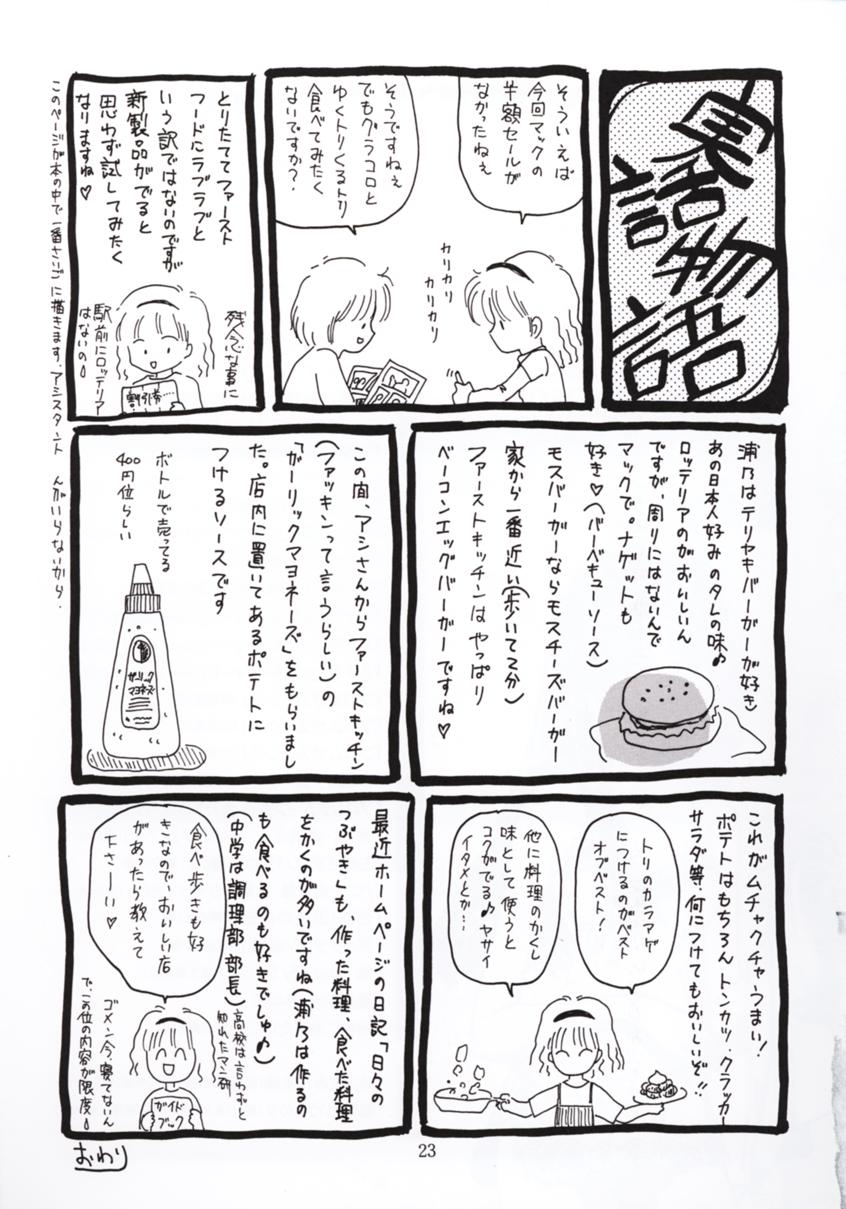 実話物語
そういえば
今回マックの
半額セールが
なかったねぇ
そうですねぇ
でもグラコロと
ゆくトリくるトリ
食べてみたく
ないですか?
カリカリ
カリカリ
とりたててファースト
フードにラブラブと
いう訳ではないのですが
新製品がでると
思わず試してみたく
なりますね♡
残念な事に
駅前にロッテリア
はないの
割引券…
このページが本の中で一番さいごに描きます.アシスタント
んがいらないから.
浦乃はテリヤキバーガーが好き
あの日本人好みのタレの味♪
ロッテリアのがおいしいん
ですが、周りにはないんで
マックで。ナゲットも
好き♡(バーベキューソース)
モスバーガーならモスチーズバーガー
家から一番近い(歩いて2分)
ファーストキッチンはやっぱり
ベーコンエッグバーガーですね♡
この間、アシさんからファーストキッチン
(ファッキンって言うらしい)の
「ガーリックマヨネーズ」をもらいまし
た。店内に置いてあるポテトに
つけるソースです
ボトルで売ってる
400円位らしい
ガーリック
マヨネーズ
これがムチャクチャうまい!
ポテトはもちろんトンカツ・クラッカー
サラダ等.何につけてもおいしいぞ!!
トリのカラアゲ
につけるのがベスト
オブベスト!
他に料理のかくし
味として使うと
コクがでる♪ヤサイ
イタメとか…
最近ホームページの日記「日々の
つぶやき」も、作った料理、食べた料理
をかくのが多いですね(浦乃は作るの
も食べるのも好きでしゅ♪)
(中学は調理部部長)
高校は言わずと
知れたマン研
食べ歩きも好
きなので、おいしい店
があったら教えて
下さーい♡
ゴメン今、寝てないん
で、この位の内容が限度
ガイド
ブック
おわり
23